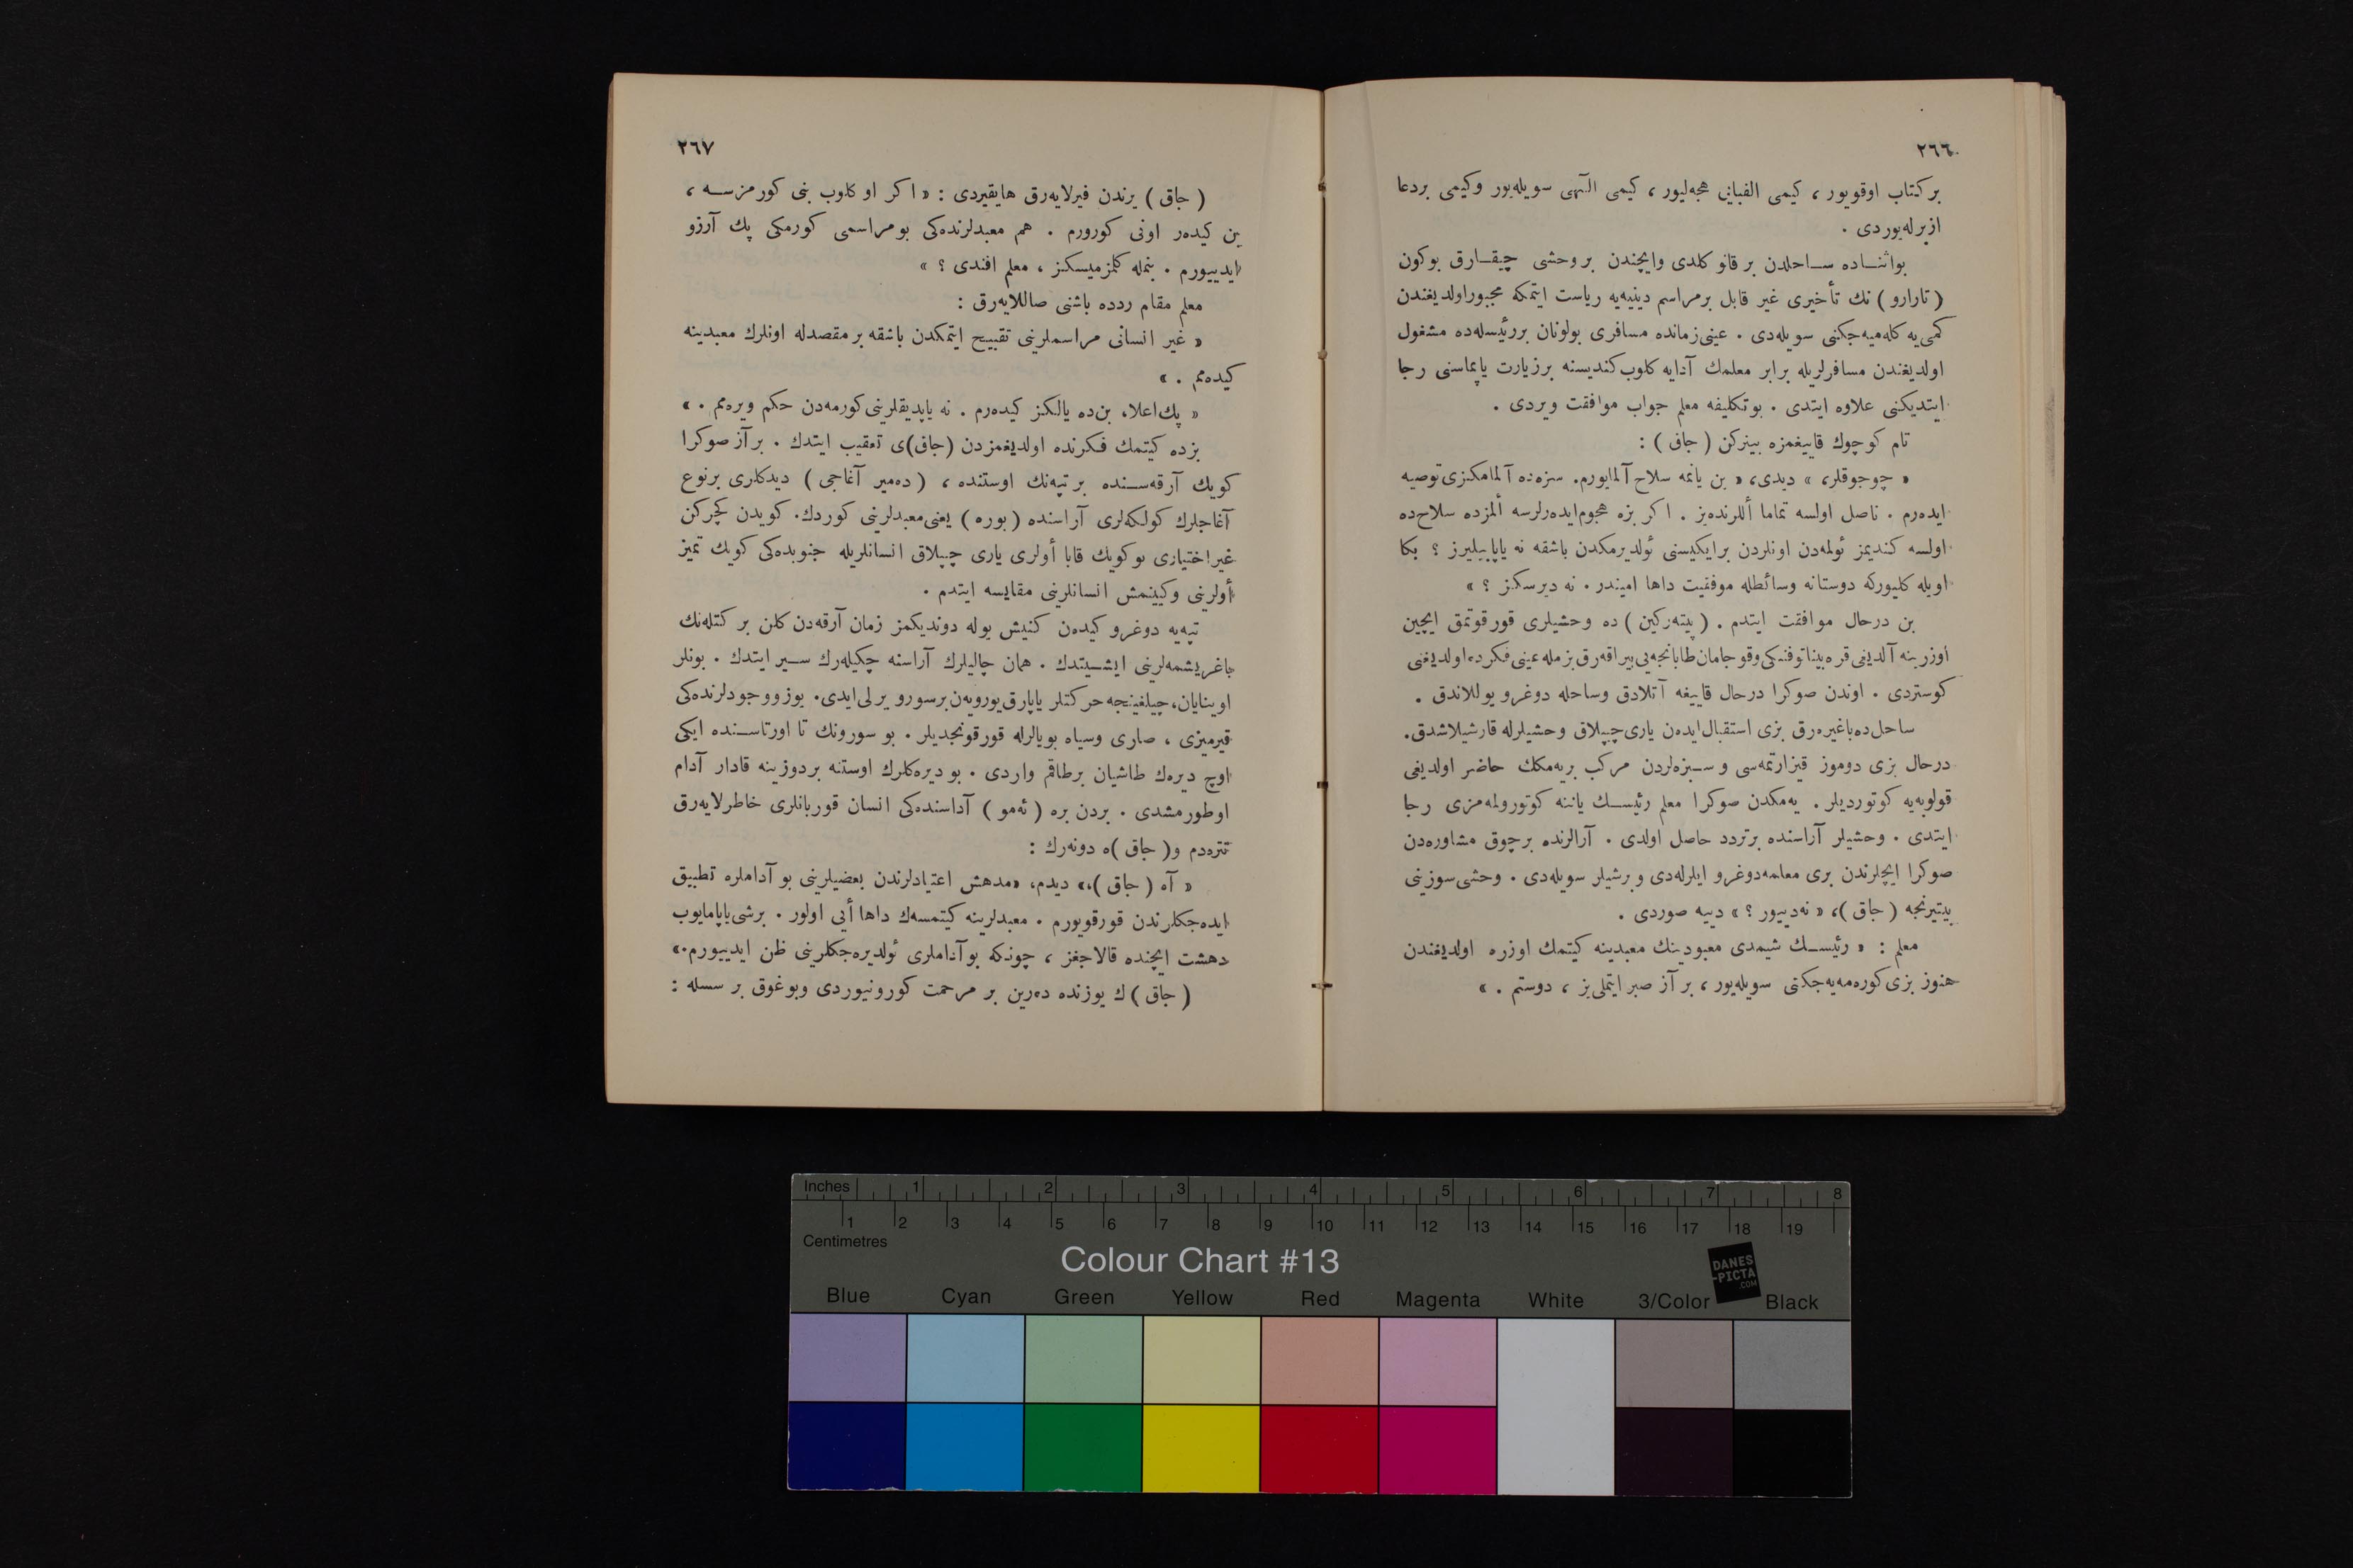 ٢٦٦
بر كتاب اوقويور ، كيمى الفبايى هجه‌ليور ، كيمى الٓهى سويله‌يور وكيمى بردعا
ازبرله‌يوردى .
بواثنـاده سـاحلدن بر قانو كلدى وايچندن بروحشى چيقـارق بوكون
( تارارو ) نك تأخيرى غير قابل برمراسم دينيه‌يه رياست ايتمكه مجبوراولديغندن
كمى‌يه كله‌ميه‌جكنى سويله‌دى . عينى‌زمانده مسافرى بولونان بررئيسله‌ده مشغول
اولديغندن مسافرلريله برابر معلمك آدايه كلوب‌كنديسنه برزيارت ياپماسنى رجا
ايتديكنى علاوه ايتدى . بوتكليفه معلم جواب موافقت ويردى .
تام كوچوك قاييغمزه بينركن ( جاق ) :
« چوجوقلر، » ديدى، « بن يانمه سلاح آلمايورم. سزه‌ده آلمامكزى توصيه
ايده‌رم . ناصل اولسه تماما أللرنده‌يز . اكر بزه هجوم‌ايده‌رلرسه ألمزده سلاح‌ده
اولسه كنديمز ئولمه‌دن اونلردن برايكيسنى ئولديرمكدن باشقه نه ياپابيليرز ؟ بكا
اويله كليوركه دوستانه وسائطله موفقيت داها اميندر . نه ديرسكز ؟ »
بن درحال موافقت ايتدم . ( پيته‌ركين ) ده وحشيلرى قورقوتمق ايچين
اوزرينه آلديغى قره‌بيناتوفنكى‌وقوجامان‌طابانجه‌يى‌بيراقه‌رق‌بزمله‌عينى‌فكرده‌اولديغنى
كوستردى . اوندن صوكرا درحال قاييغه آتلادق وساحله دوغرويوللاندق .
ساحل‌ده‌باغيره‌رق بزى استقبال‌ايده‌ن يارى‌چيپلاق وحشيلرله قارشيلاشدق.
درحال بزى دوموز قيزارتمه‌سى وسـبزه‌لردن مركب بريه‌مكك حاضر اولديغى
قولوبه‌يه كوتورديلر . يه‌مكدن صوكرا معلم رئيسـك ياننه كوتورولمه‌مزى رجا
ايتدى . وحشيلر آراسنده برتردد حاصل اولدى . آرالرنده برچوق مشاوره‌دن
صوكرا ايچلرندن برى معلمه‌دوغرو ايلرله‌دى وبرشيلر سويله‌دى . وحشى‌سوزينى
بيتيرنجه ( جاق )، « نه‌ديبور ؟ » دييه صوردى .
معلم : « رئيسـك شيمدى معبودينك معبدينه كيتمك اوزره اولديغندن
هنوز بزى‌كوره‌مه‌يه‌جكنى سويله‌يور ، بر آز صبر ايتملى‌يز ، دوستم . »
٢٦٧
( جاق ) يرندن فيرلايه‌رق هايقيردى : « اكر او كلوب بنى كورمزسـه ،
بن كيده‌ر اونى كورورم . هم معبدلرنده‌كى بومراسمى كورمكى پك آرزو
ايدييورم . بنمله كلمزميسكز ، معلم افندى ؟ »
معلم مقام ردده باشنى صاللايه‌رق :
« غير انسانى مراسملرينى تقبيح ايتمكدن باشقه برمقصدله اونلرك معبدينه
كيده‌مم . »
« پك‌اعلا، بن‌ده يالكز كيده‌رم . نه ياپديقلرينى‌كورمه‌دن حكم ويره‌مم . »
بزده كيتمك فكرنده اولديغمزدن (جاق)ى تعقيب ايتدك . برآز صوكرا
كويك آرقه‌سـنده برتپه‌نك اوستنده ، ( ده‌مير آغاجى ) ديدكلرى برنوع
آغاجلرك كولكه‌لرى آراسنده ( بوره ) يعنى‌معبدلرينى كوردك. كويدن كچركن
غيراختيارى بوكويك قابا أولرى يارى چيپلاق انسانلريله جنوبده‌كى كويك تميز
أولرينى وكيينمش انسانلرينى مقايسه ايتدم .
تپه‌يه دوغرو كيده‌ن كنيش يوله دونديكمز زمان آرقه‌دن كلن بر كتله‌نك
باغريشمه‌لرينى ايشـيتدك . همان چاليلرك آراسنه چكيله‌رك سـير ايتدك . بونلر
اوينايان،چيلغينجه حركتلر ياپارق‌يورويه‌ن‌برسورو يرلى‌ايدى. يوزووجودلرنده‌كى
قيرميزى ، صارى وسياه بويالرله قورقونجديلر . بو سورونك تا اورتاسـنده ايكى
اوچ ديره‌ك طاشيان برطاقم واردى . بوديره‌كلرك اوستنه بردوزينه قادار آدام
اوطورمشدى . بردن بره ( ئه‌مو ) آداسنده‌كى انسان قوربانلرى خاطرلايه‌رق
تتره‌دم و( جاق )ه دونه‌رك :
« آه ( جاق )،» ديدم، «مدهش اعتيادلرندن بعضيلرينى بو آداملره تطبيق
ايده‌جكلرندن قورقويورم . معبدلرينه كيتمسه‌ك داها أيى اولور . برشى‌ياپامايوب
دهشت ايچنده قالاجغز ، چونكه بوآداملرى ئولديره‌جكلرينى ظن ايدييورم.»
( جاق )ك يوزنده ده‌رين بر مرحمت كورونيوردى وبوغوق بر سسله :
Inches 1 2 3 4 5 6 7 8
1 2 3 4 5 6 7 8 9 10 11 12 13 14 15 16 17 18 19
Centimetres
Colour Chart #13
DANES
-PICTA
.COM
Blue Cyan Green Yellow Red Magenta White 3/Color Black